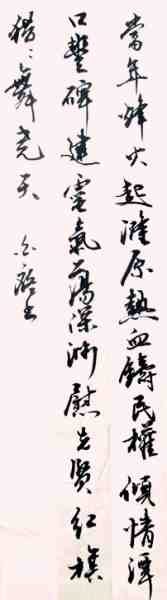 當年烽火起淮原熱血鑄民權傾情潭
口豐碑建靈氣蕩深洲慰先賢紅旗
獵々舞堯天